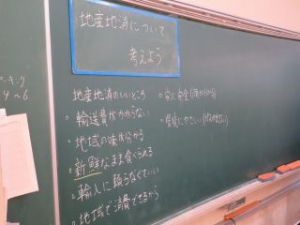 地産地消について
考えよう
地産地消のいいところ
・輸送費がかからない
・地域の味が分かる
・新鮮なまま食べられる
・輸入に頼らなくていい
・地域で消費できるから
・安心安全
4〜6